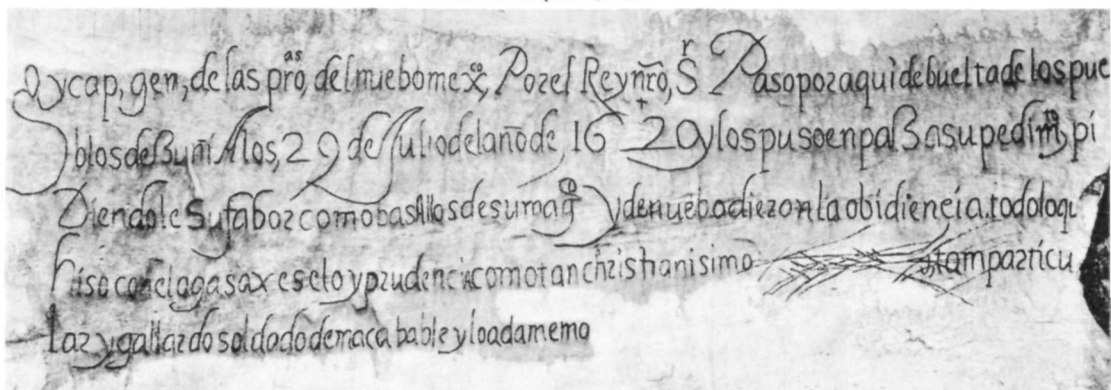 Oycap, gen, de las proas, del nuebo mexco, Por el Rey nro, Sr Paso por aqui de buelta de los pue
blos de Zuñi A los, 29 de Julio del año de, 1620 y los puso en paz a su pedimto, pi
Diendole su fabor como basallos de su magd Y de nuebo dieron la obidiencia. todo lo qu
hiso con el agasaxe selo y prudencia como tan christianisimo tan particu
lar y gallardo soldado de inacabable y loada memo